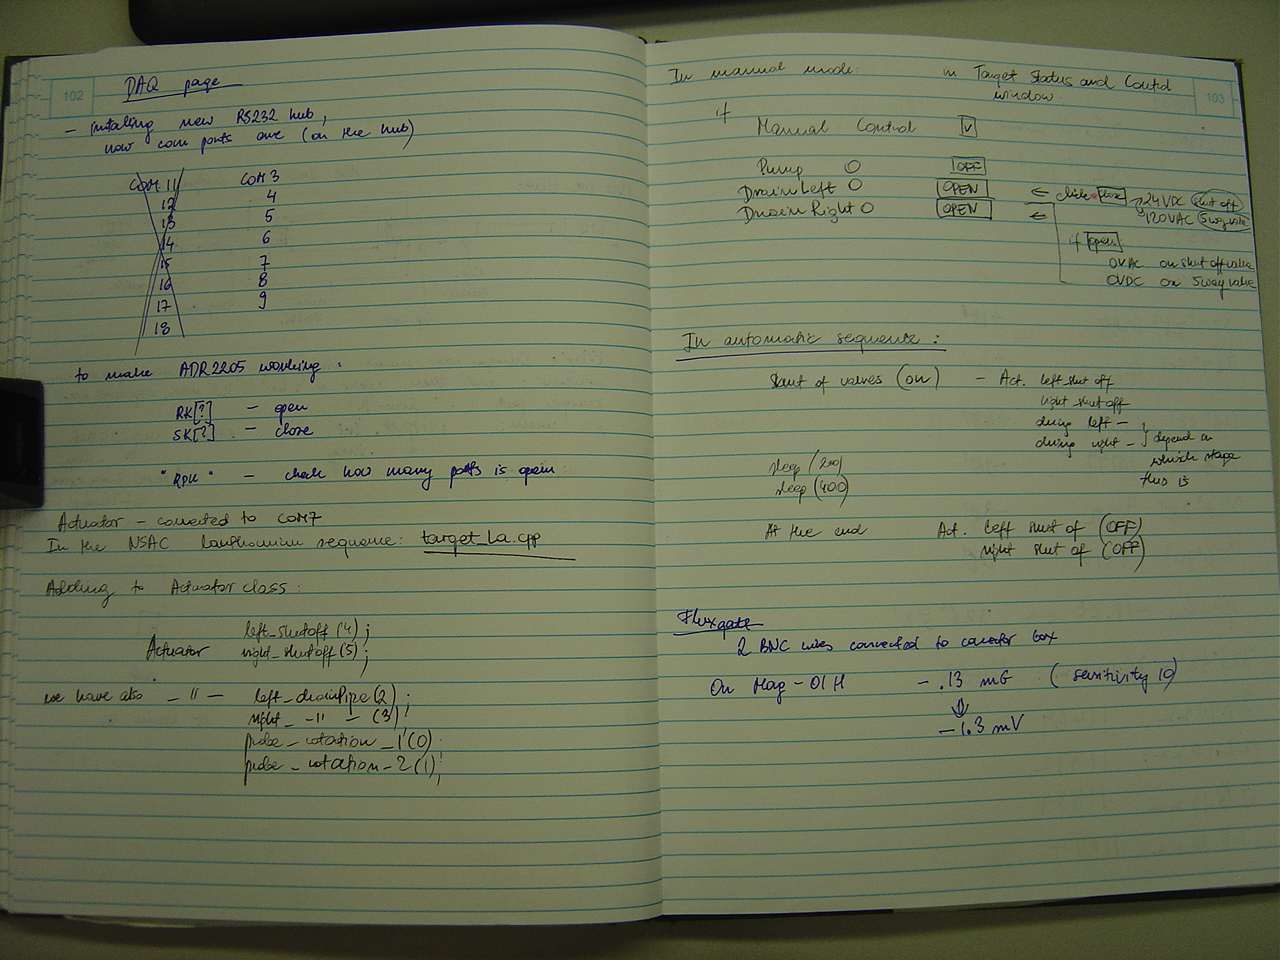 102
DAQ page
- instaling new RS232 hub,
now com ports are (on the hub)
COM 11 COM 3
12 4
13 5
14 6
15 7
16 8
17 9
18
to make ADR2205 working :
RK[?] - open
SK[?] - close
" - check how many ports is open
Actuator - connected to COM7
In the NSAC Lanthanium sequence: target_La.cpp
Adding to Actuator class :
left_shutoff (4) ;
Actuator right_shutoff (5) ;
we have also - " - left_drainPipe (2) ;
right_ - " - (3) ;
probe_rotation_1 (0)
probe_rotation_2 (1) ;
103
In manual mode: in Target Status and Control
window
if
Manual Control V
Pump O OFF
Drain Left O OPEN ← click close 24 VDC shut off
Drain Right O OPEN ← 120 VAC 5way valve
if open
0VAC on shut off valve
0VDC on 5way valve
In automatic sequence :
Shut of valves (on) - Act. left shut off
right shut off
during left -
during right - } depend on
which stage
this is
sleep (200)
sleep (400)
At the end Act. Left shut of (OFF)
right shut of (OFF)
Fluxgate
2 BNC wires connected to conector box
On Mag-01H - .13 mG (sensitivity 10)
⇓
-1.3 mV